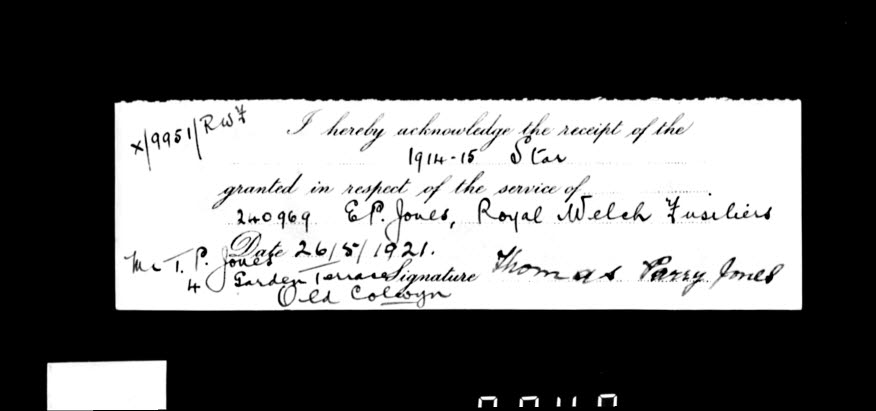 x/9951/RWF
I hereby acknowledge the receipt of the
1914-15 Star
granted in respect of the service of
240969 E P. Jones, Royal Welch Fusiliers
Date 26/5/1921.
Mr T. P. Jones
4 Garden Terrace
Signature Thomas Parry Jones
Old Colwyn